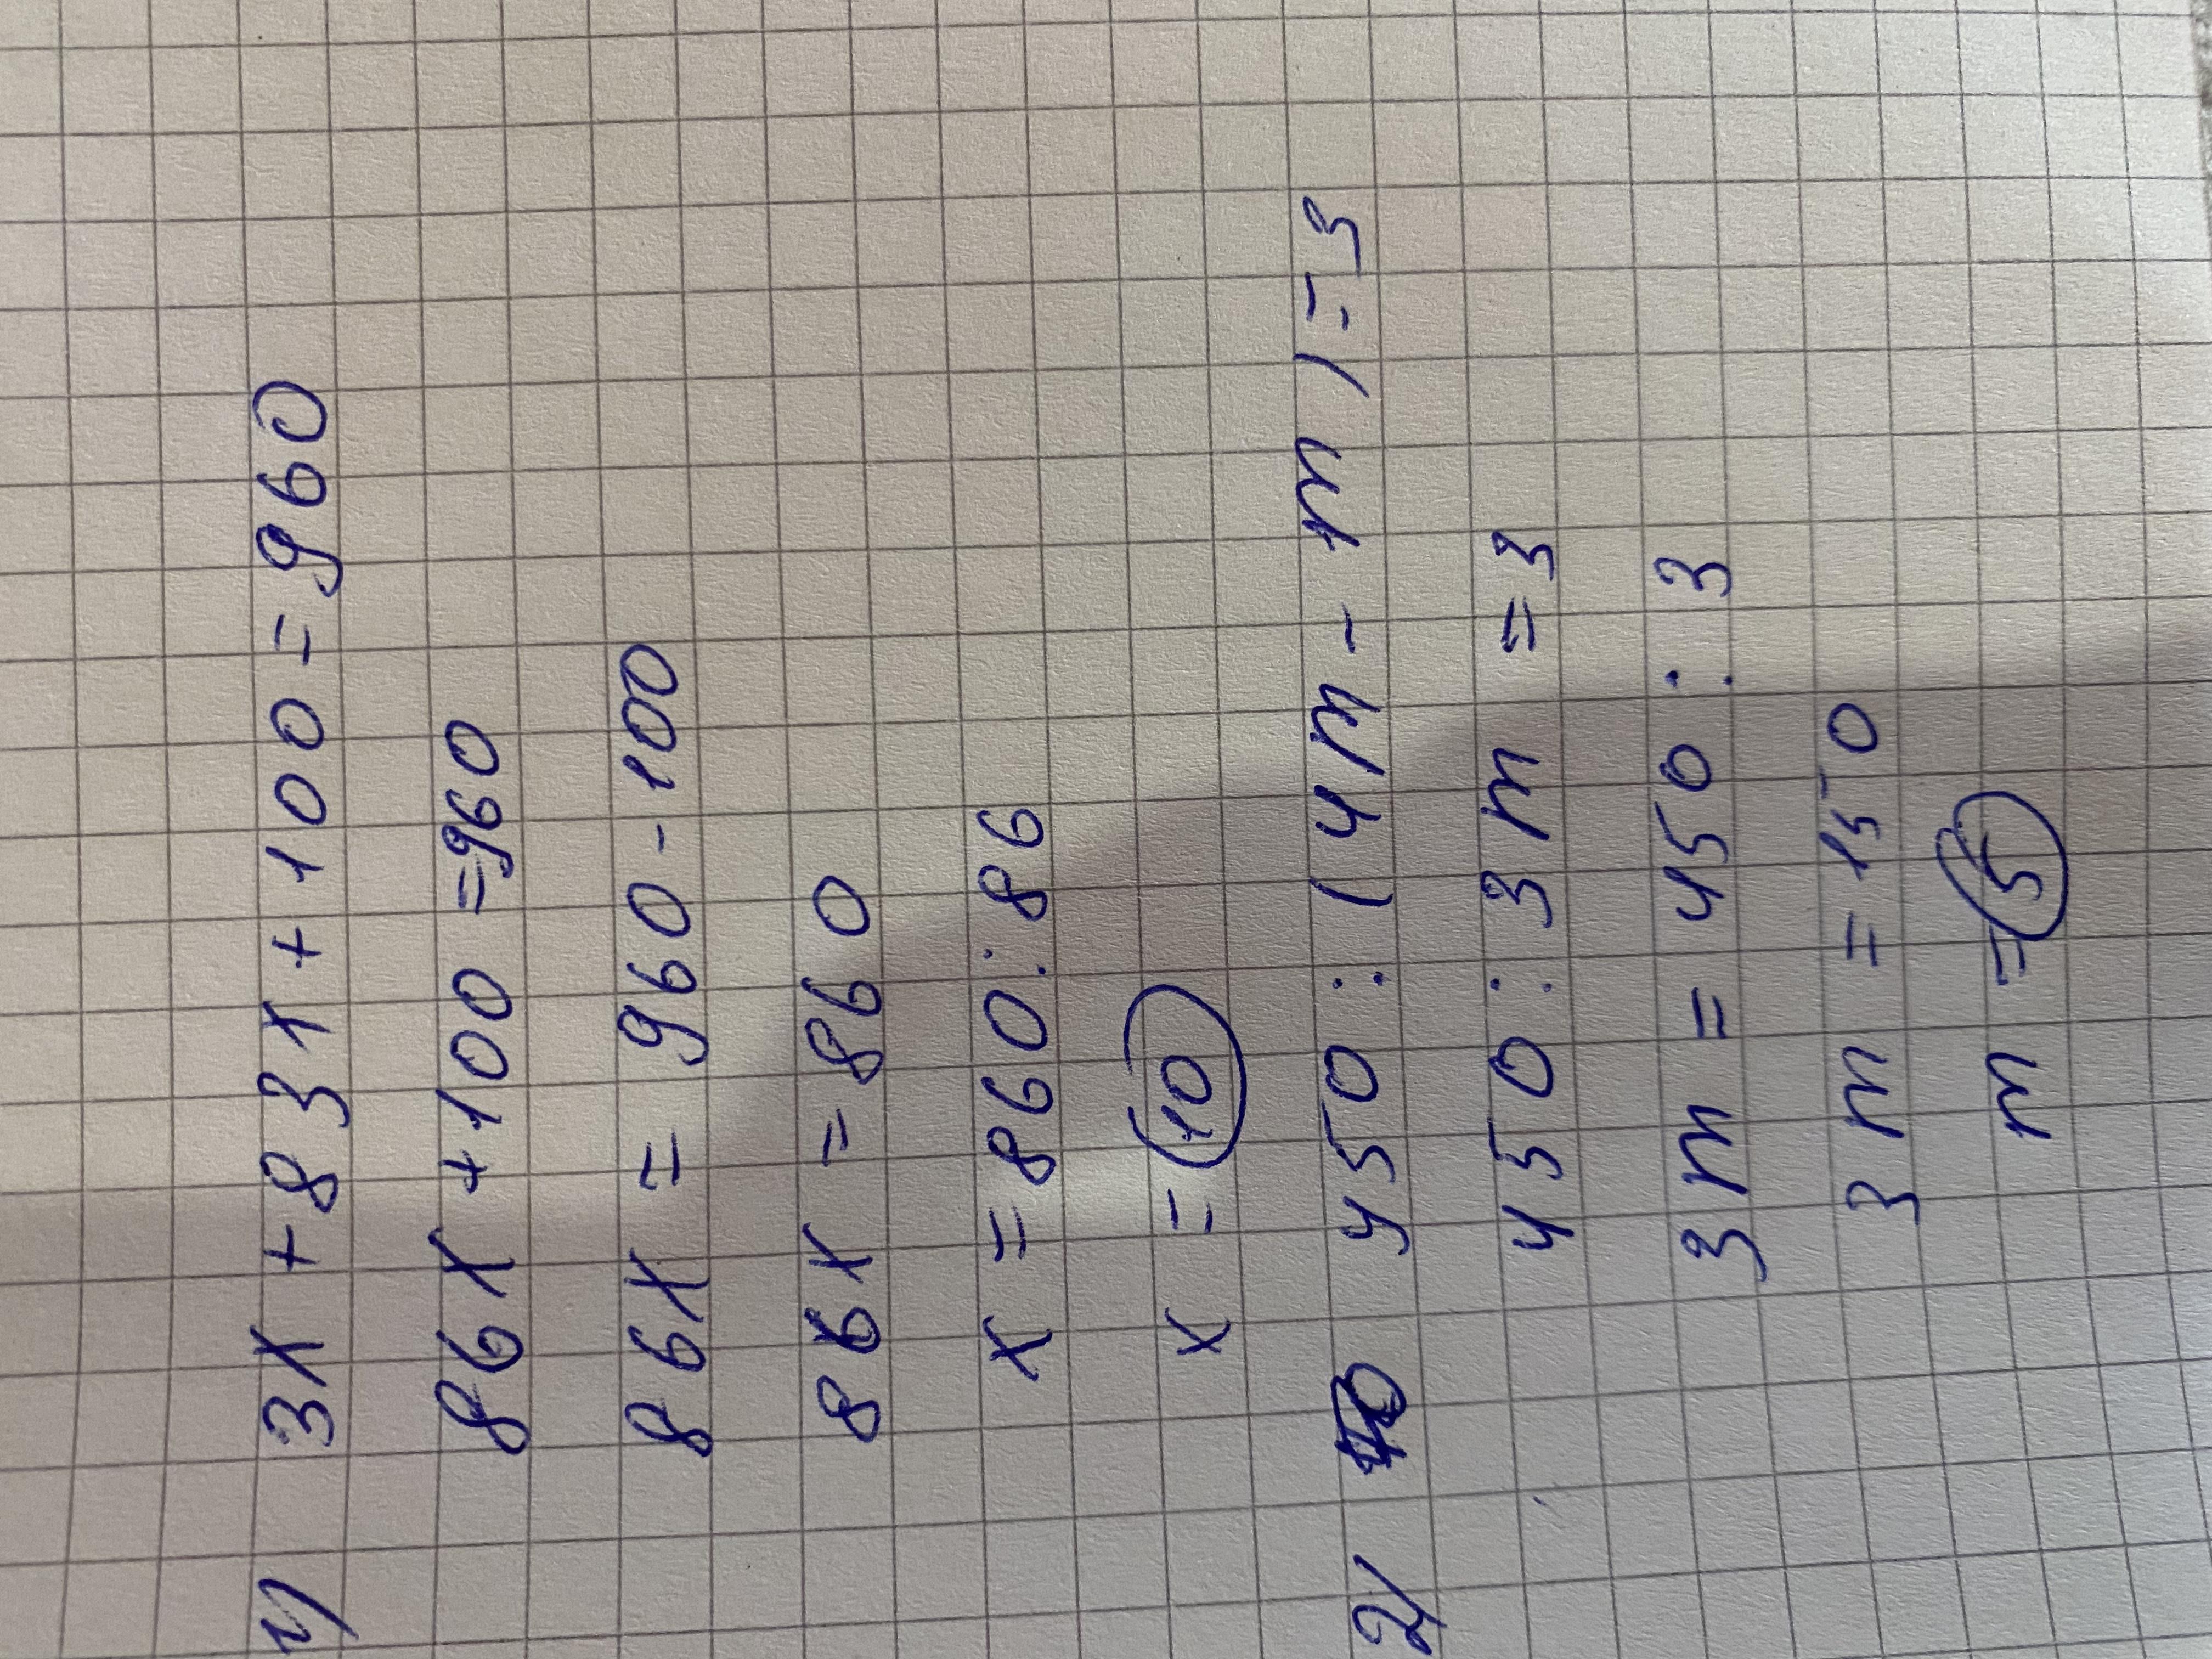 1) 3x + 83x + 100 = 960
86x + 100 = 960
86x = 960 - 100
86x = 860
x = 860 : 86
x = 10
2) 450 : (4m - m) = 3
450 : 3m = 3
3m = 450 : 3
3m = 150
m = 5